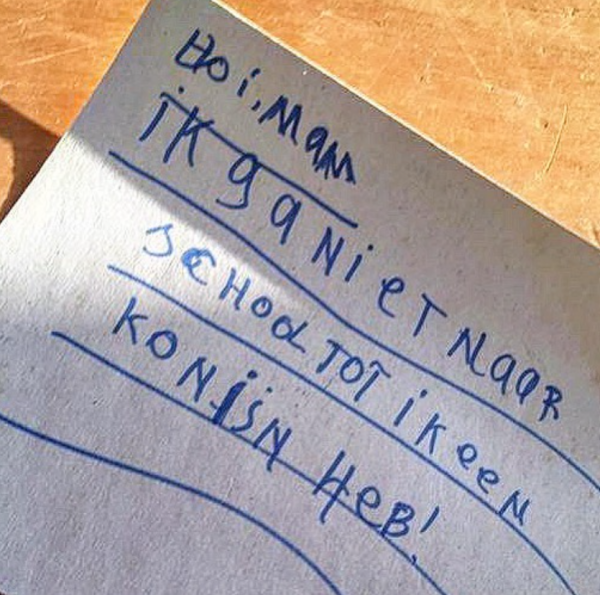 Hoi, Mam
ik ga niet naar
school tot ik een
konijsn heb!